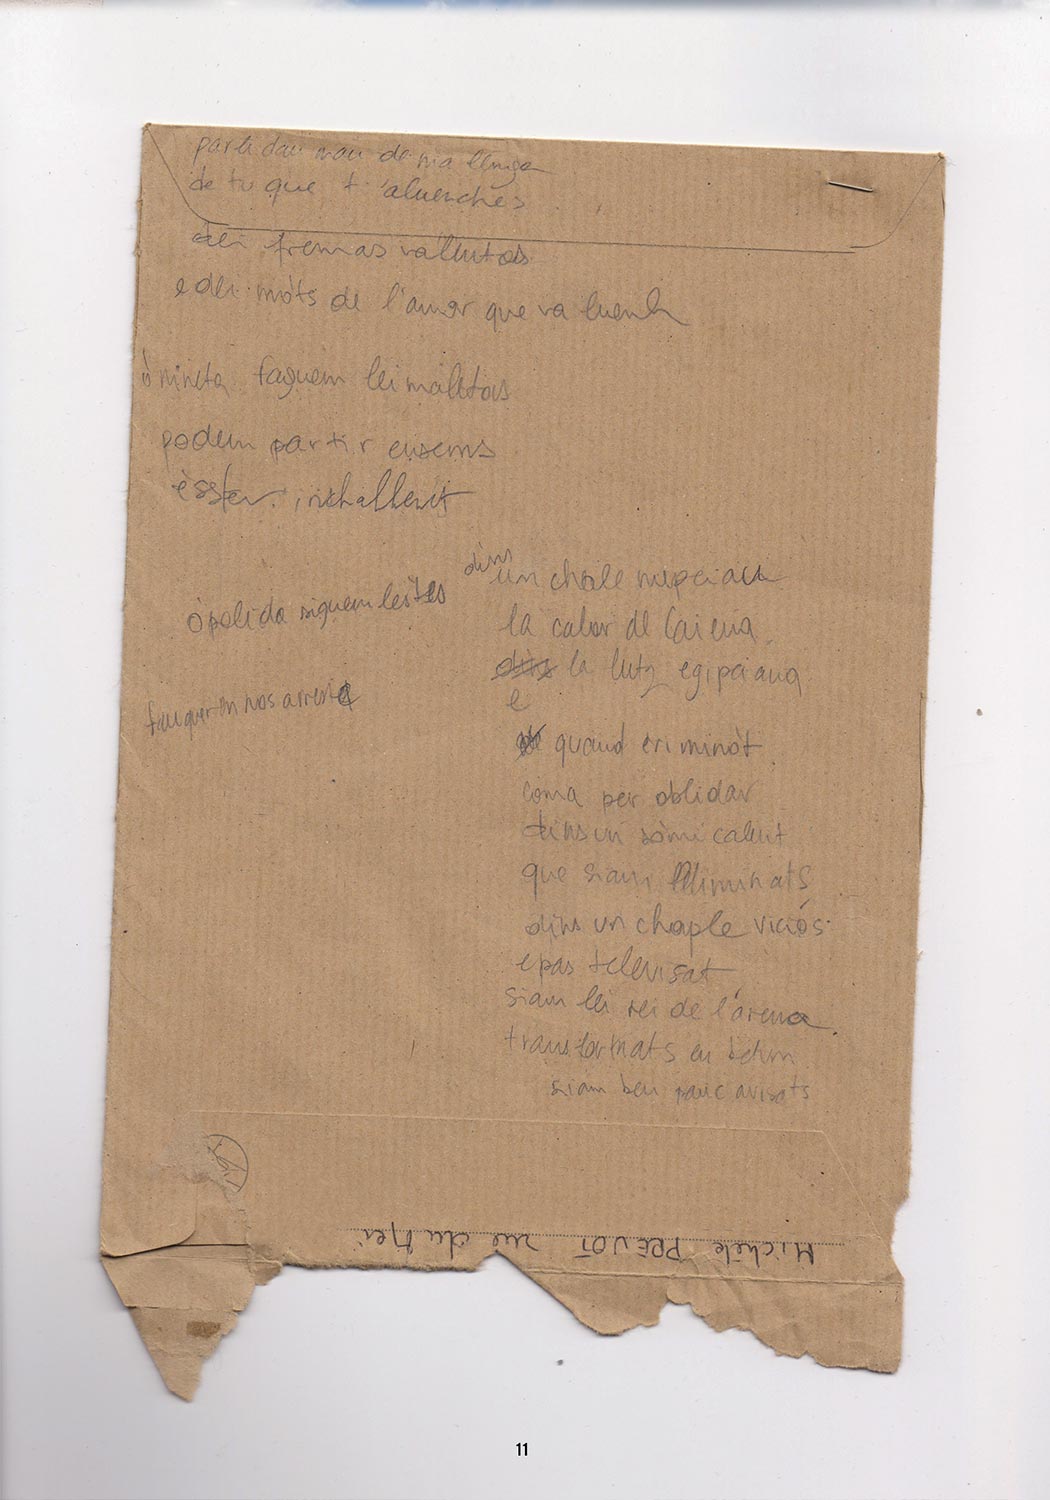 parla dau mau de ma lenga
de tu que t'aluenches
dei fremas valentas
e dei mòts de l'amor que va luenh
ò mineta faguem lei maletas
podem partir ensems
èsser
ò polida siguem lestes
fau que nos
dins
un chale nupciau
la calor de Caiena
dins la lutz egipciana
e
quand eri minòt
coma per oblidar
dins un sòmi calut
que siam eliminats
dins un chaple viciós
e pas televisat
siam lei rei de l'arena
transformats en
siam ben pauc avisats
Michèle PREVOT rue du
11